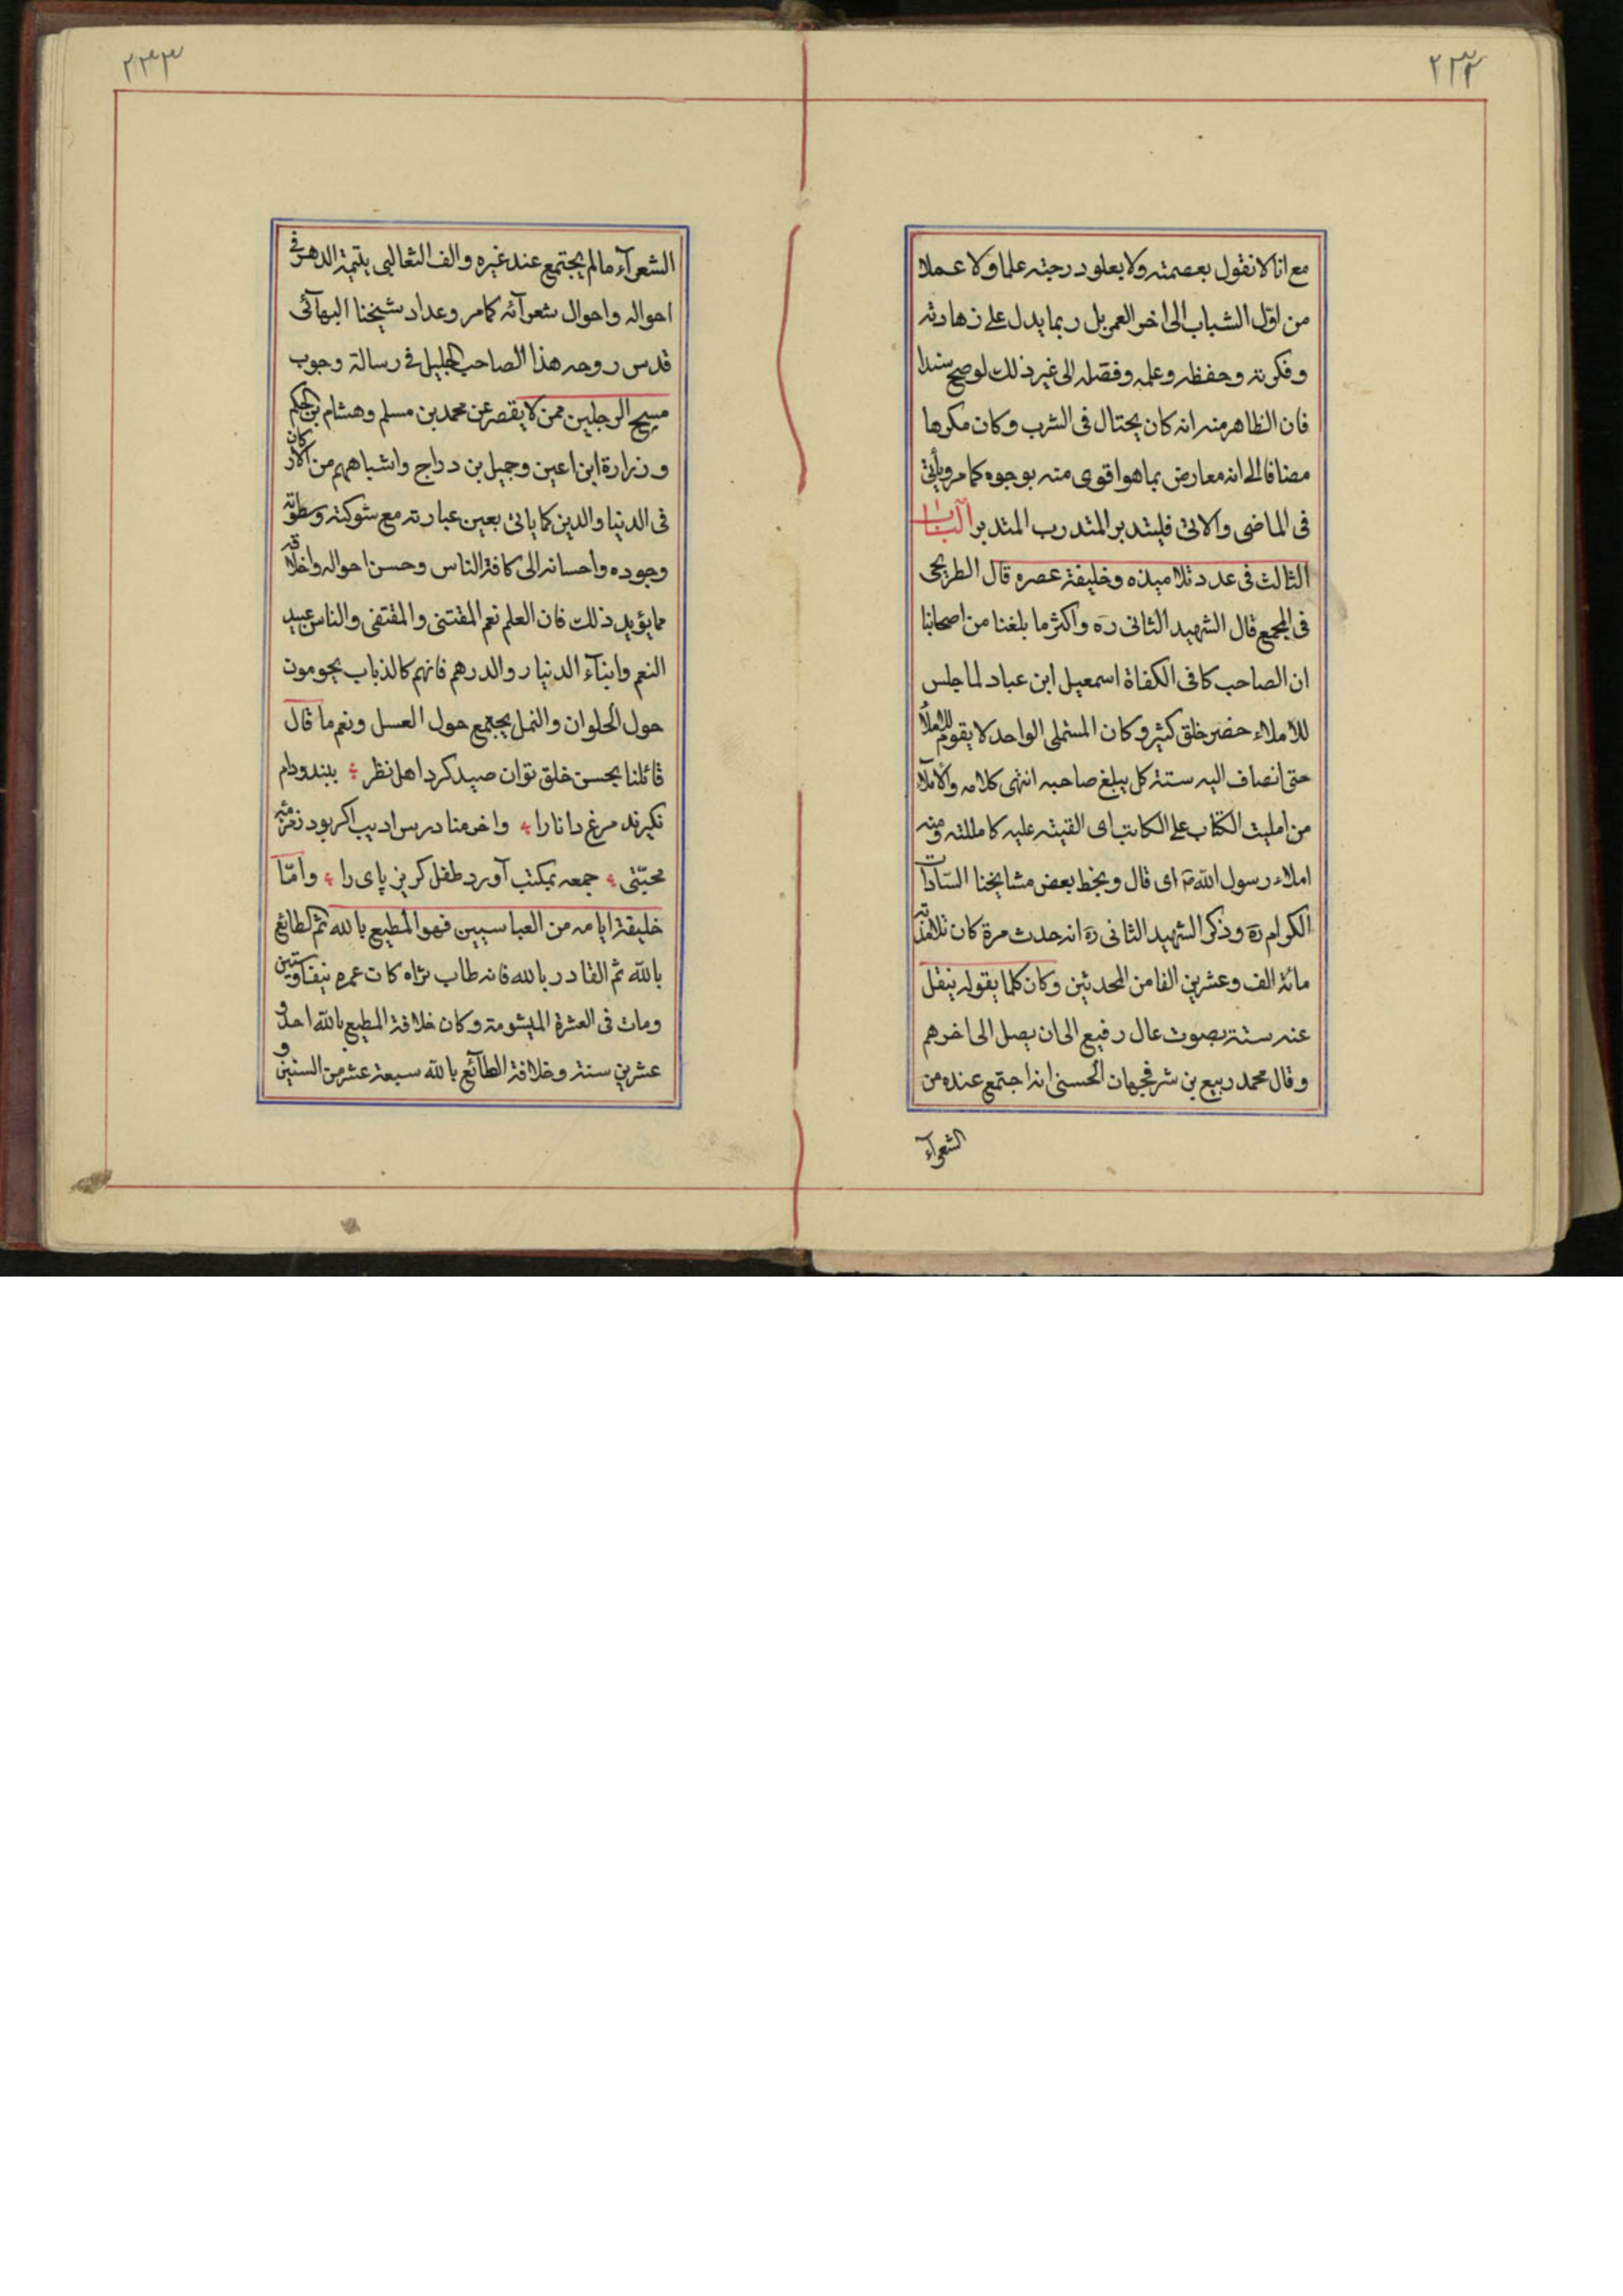 ٢٣٢
مع انا لا نقول بعصمته ولا يعلو درجته علما ولا عملا
من اوّل الشباب الى اخر العمر بل ربما يدل على زهادته
وفكرته وحفظه وعلمه وفضله الى غير ذلك لو صح سندا
فان الظاهر منه انه كان يحتال فى الشرب وكان مكرها
مضافا الى انه معارض بما هو اقوى منه بوجوه كما مر ويأتى
فى الماضى والاتى فليتدبر المتدرب المتدبر الباب
الثالث فى عدد تلاميذه وخليفة عصره قال الطريحى
فى المجمع قال الشهيد الثانى ره واكثر ما بلغنا من اصحابنا
ان الصاحب كافى الكفاة اسمعيل ابن عباد لما جلس
للاملاء حضر خلق كثير وكان المستملى الواحد لا يقوم للاملاء
حتى انضاف اليه ستة كل يبلغ صاحبه انتهى كلامه والاملاء
من امليت الكتاب على الكاتب اى القيته عليه كامللته ومنه
املاء رسول الله ص اى قال وبخط بعض مشايخنا السّادات
الكرام ره وذكر الشهيد الثانى ره انه حدث مرة كان تلامذته
مائة الف وعشرين الفا من المحدثين وكان كلما يقوله ينقل
عنه ستة بصوت عال رفيع الى ان يصل الى اخرهم
وقال محمد ربيع بن شرفجهان الحسنى انه اجتمع عنده من
الشعرآء
٢٣٣
الشعرآء ما لم يجتمع عند غيره والف الثعالبى يتيمة الدهر فى
احواله واحوال شعرآئه كما مر وعداد شيخنا البهآئى
قدس روحه هذا الصاحب الجليل فى رسالة وجوب
مسح الرجلين ممن لا يقصر عن محمد بن مسلم وهشام بن الحكم
وزرارة ابن اعين وجميل بن دراج واشباههم من الاركان
فى الدنيا والدين كما ياتى بعين عبارته مع شوكته وسطوته
وجوده واحسانه الى كافة الناس وحسن احواله واخلاقه
مما يؤيد ذلك فان العلم نعم المقتنى والمقتفى والناس عبيد
النعم وابنآء الدينار والدرهم فانهم كالذباب يحومون
حول الحلوان والنمل يجتمع حول العسل ونعم ما قال
قائلنا بحسن خلق توان صيد كرد اهل نظر ؛ ببند ودام
نكيرند مرغ دانا را ؛ واخر منا درس اديب اكر بود زمزمه
محبّتى ؛ جمعه بمكتب آورد طفل كريز پاى را ؛ وامّا
خليفة ايامه من العباسيين فهو المطيع بالله ثم الطائع
بالله ثم القادر بالله فانه طاب ثراه كان عمره نيفا وستين
ومات فى العشرة الميشومة وكان خلافة المطيع بالله احد و
عشرين سنة وخلافة الطآئع بالله سبعة عشر من السنين و